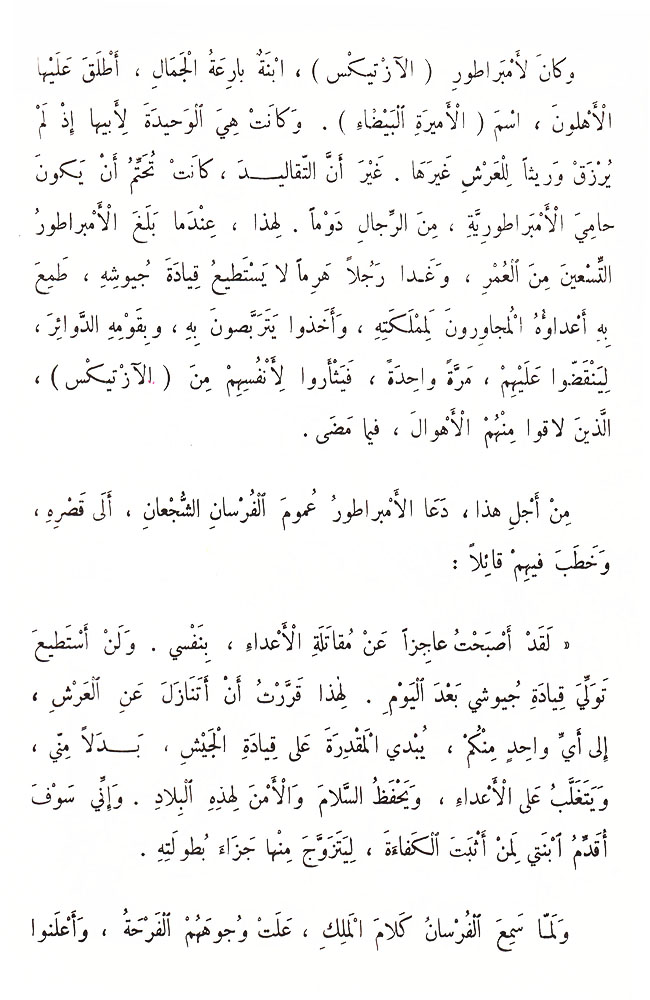 وكانَ لأَمْبَراطورِ ( الآزْتيكْس ) ، ابْنَةٌ بارِعَةُ الْجَمَالِ ، أَطْلَقَ عَلَيْها
الْأَهْلونَ ، اسْمَ ( الْأَميرَةِ الْبَيْضاءِ ) . وَكانَتْ هِيَ الْوَحيدَةَ لِأَبيها إِذْ لَمْ
يُرْزَقْ وَريثاً لِلْعَرْشِ غَيْرَهَا . غَيْرَ أَنَّ التّقاليـــدَ ، كانَتْ تُحَتِّمُ أَنْ يَكونَ
حامِيَ الْأَمْبَراطورِيَّةِ ، مِنَ الرِّجالِ دَوْماً . لِهذا ، عِنْدَما بَلَغَ الْأَمْبراطورُ
التِّسْعينَ مِنَ الْعُمْرِ ، وَغَــدا رَجُلاً هَرِماً لا يَسْتَطيعُ قِيادَةَ جُيوشِهِ ، طَمِعَ
بِهِ أَعْداؤُهُ الْمُجاوِرونَ لِمْلَكَتِهِ ، وَأَخَذوا يَتَرَبَّصونَ بِهِ ، وبِقَوْمِهِ الدَّوائِرَ ،
لِيَنْقَضّوا عَلَيْهِمْ ، مَرَّةً واحِدَةً ، فَيَثْأَروا لِأَنْفُسِهِمْ مِنَ ( الآزْتيكْس ) ،
الَّذينَ لاقوا مِنْهُمْ الْأَهْوالَ ، فيما مَضَى .
مِنْ أَجْلِ هذا ، دَعَا الْأَمْبراطورُ عُمومَ الْفُرْسانِ الشُّجْعانِ ، أَلَى قَصْرِهِ ،
وَخَطَبَ فيهِمْ قائِلاً :
« لَقَدْ أَصْبَحْتُ عاجِزاً عَنْ مُقاتَلَةِ الْأَعْداءِ ، بِنَفْسي . وَلَنْ أَسْتَطيعَ
تَوَلِّيَ قِيادَةِ جُيوشي بَعْدَ الْيَوْمِ . لِهٰذا قَرَّرْتُ أَنْ أَتَنازَلَ عَنِ الْعَرْشِ ،
إِلى أَيِّ واحِدٍ مِنْكُمْ ، يُبْدي الْمَقْدِرَةَ عَلى قِيادَةِ الْجَيْشِ ، بَـــدَلاً مِنّي ،
وَيَتَغَلَّبُ عَلى الْأَعْداءِ ، وَيَحْفَظُ السَّلامَ وَالْأَمْنَ لِهذِهِ الْبِلادِ . وَإِنِّي سَوْفَ
أُقَدِّمُ ابْنَتي لِمَنْ أَثْبَتَ الْكَفاءَةَ ، لِيَتَزَوَّجَ مِنْها جَزَاءَ بُطولَتِهِ .
وَلَمّـا سَمِعَ الْفُرْسانُ كَلامَ الْمَلِكِ ، عَلَتْ وُجوهَهُمْ الْفَرْحَةُ ، وَأَعْلَنوا